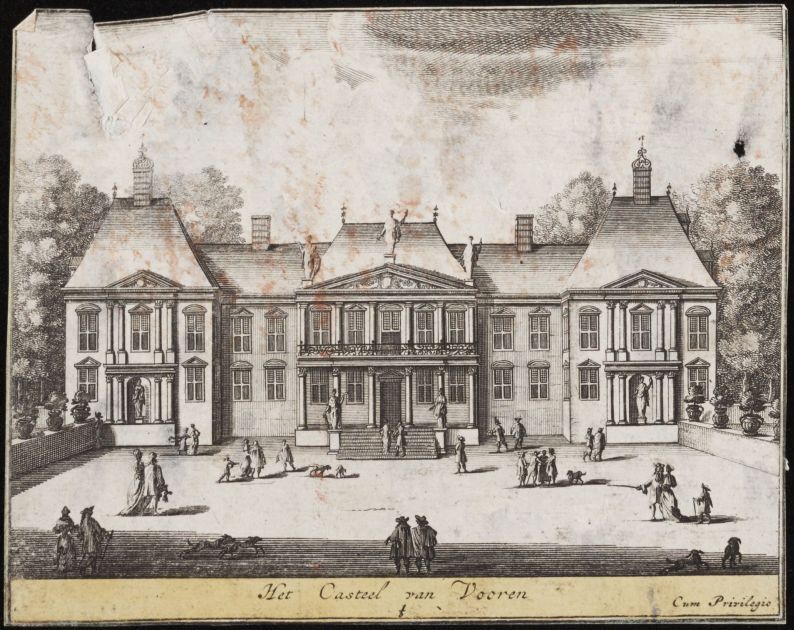 Het Casteel van Vooren
Cum Privilegio